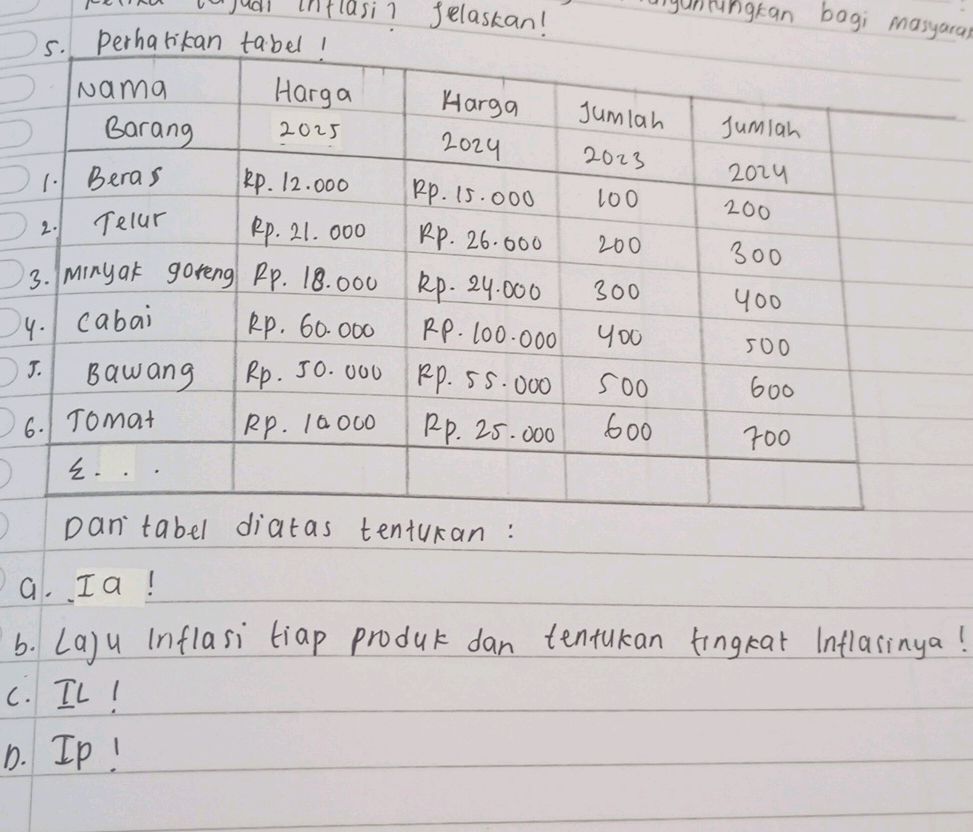 inflasi? Jelaskan!
bagi
5. Perhatikan tabel!
Nama Barang Harga 2025 Harga 2024 Jumlah 2023 Jumlah 2024
1. Beras Rp. 12.000 Rp. 15.000 100 200
2. Telur Rp. 21.000 Rp. 26.000 200 300
3. Minyak goreng Rp. 18.000 Rp. 24.000 300 400
4. Cabai Rp. 60.000 Rp. 100.000 400 500
5. Bawang Rp. 50.000 Rp. 55.000 500 600
6. Tomat Rp. 10.000 Rp. 25.000 600 700
Σ. . .
Dari tabel diatas tentukan :
a. Ia !
b. Laju Inflasi tiap produk dan tentukan tingkat Inflasinya!
c. IL !
D. Ip !